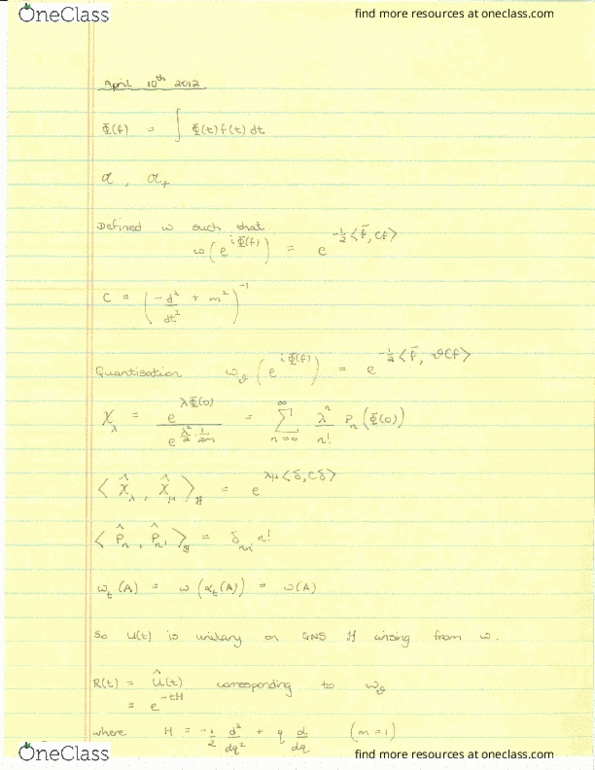 OneClass find more resources at oneclass.com
April 10th 2012
Φ(f) = ∫ Φ(t) f(t) dt
𝒶 , 𝒶₊
Defined ω such that
ω(e^{iΦ(f)}) = e^{-½⟨f̄, Cf⟩}
C = (-d²/dt² + m²)^{-1}
Quantisation ω_ϑ (e^{iΦ(f)}) = e^{-½⟨f̄, ϑCf⟩}
χ_λ = e^{λΦ(0)} / e^{λ²/2 · 1/2m} = Σ_{n=0}^{∞} λⁿ/n! Pₙ(Φ(0))
⟨χ̂_λ , χ̂_μ⟩_ℋ = e^{λμ⟨δ, Cδ⟩}
⟨P̂ₙ , P̂ₙ'⟩_ℋ = δ_{nn'} n!
ω_t(A) = ω(α_t(A)) = ω(A)
So U(t) is unitary on GNS H arising from ω.
R(t) = Û(t) corresponding to ω_ϑ
= e^{-tH}
where H = -½ d²/dq² + q d/dq (m = 1)
OneClass find more resources at oneclass.com